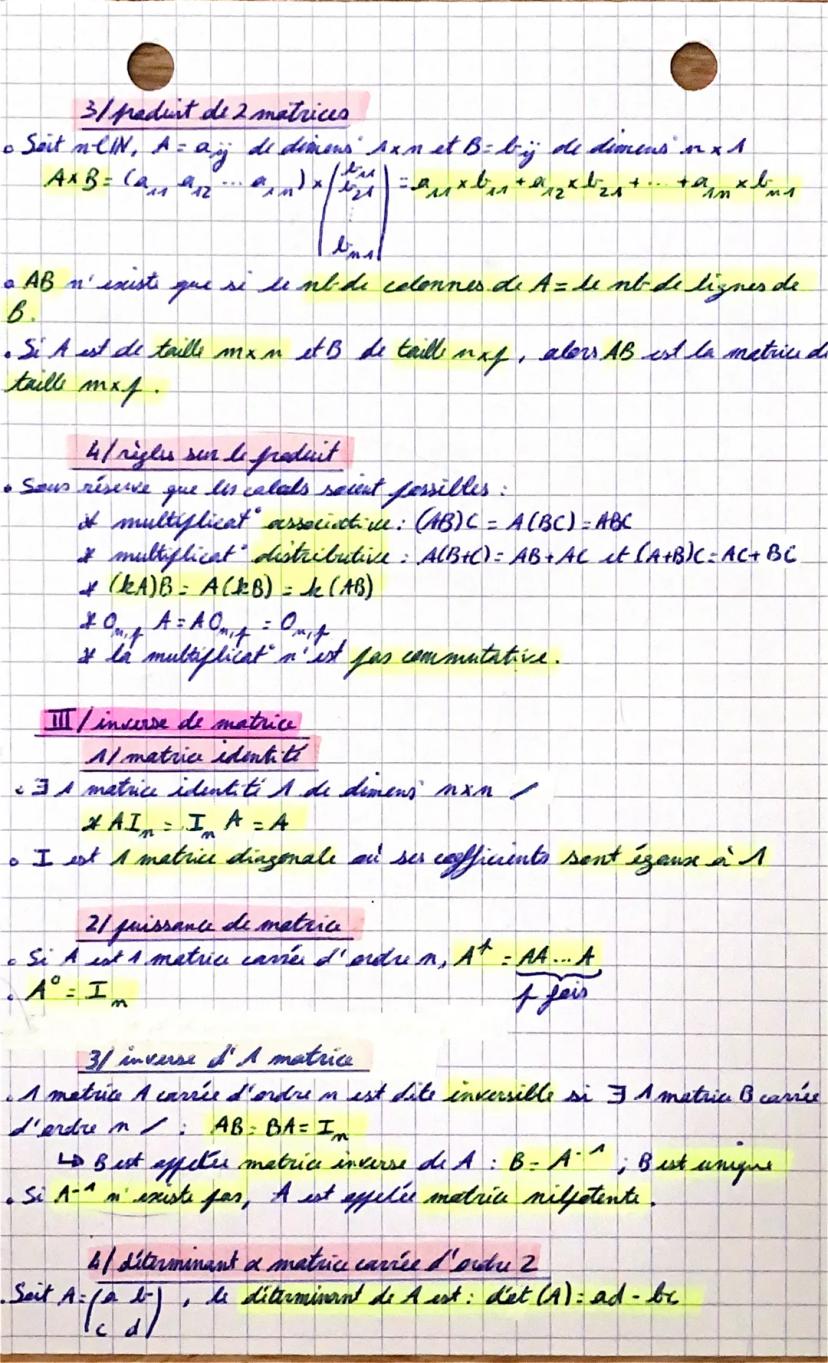 3/ produit de 2 matrices
• Soit n∈ℕ, A = aij de dimens° 1×n et B = bij de dimens° n×1
A×B = (a11 a12 ... a1n) × (b11 b21 ⋮ bn1) = a11×b11+a12×b21+...+a1n×bn1
• AB n'existe que si le nb de colonnes de A = le nb de lignes de
B.
• Si A est de taille m×n et B de taille n×p, alors AB est la matrice de
taille m×p.
4/ règles sur le produit
• Sous réserve que les calculs soient possibles :
* multiplicat° associative : (AB)C = A(BC) = ABC
* multiplicat° distributive : A(B+C) = AB + AC et (A+B)C = AC + BC
* (kA)B = A(kB) = k(AB)
* On,p A = A On,p = On,p
* la multiplicat° n'est pas commutative.
III/ inverse de matrice
1/ matrice identité
• ∃ 1 matrice identité 1 de dimens° n×n /
* AIn = In A = A
• I est 1 matrice diagonale où ses coefficients sont égaux à 1
2/ puissance de matrice
• Si A est 1 matrice carrée d'ordre n, A^p = AA...A
p fois
• A^0 = In
3/ inverse d'1 matrice
• 1 matrice A carrée d'ordre n est dite inversible si ∃ 1 matrice B carrée
d'ordre n / : AB = BA = In
↳ B est appelée matrice inverse de A : B = A^-1 ; B est unique
• Si A^-1 n'existe pas, A est appelée matrice nilpotente.
4/ déterminant α matrice carrée d'ordre 2
• Soit A = (a b
c d), le déterminant de A est : dét (A) = ad - bc